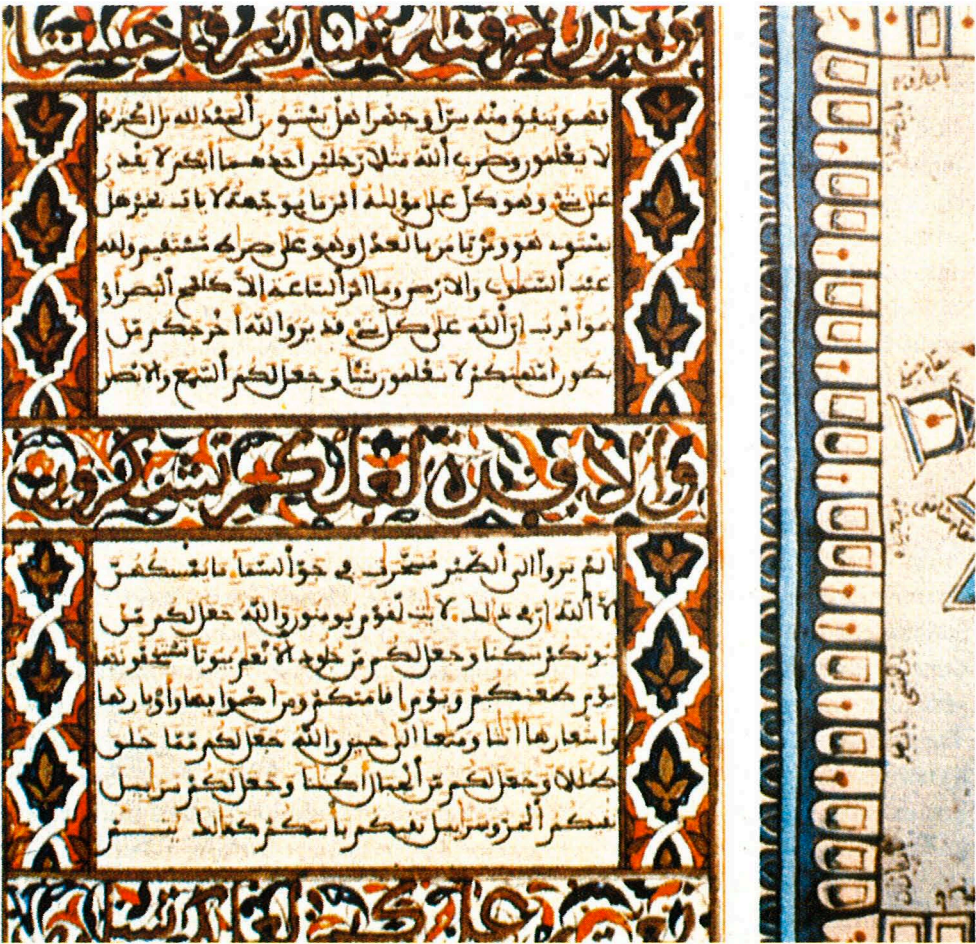 ومن رزقنه منا رزقا حسنا
فهو ينفق منه سرا وجهرا هل يستون الحمد لله بل اكثرهم
لا يعلمون وضرب الله مثلا رجلين احدهما ابكم لا يقدر
على شيء وهو كل على موليه اينما يوجهه لا يات بخير هل
يستوي هو ومن يامر بالعدل وهو على صراط مستقيم ولله
غيب السموت والارض وما امر الساعة الا كلمح البصر او
هو اقرب ان الله على كل شيء قدير والله اخرجكم من
بطون امهتكم لا تعلمون شيئا وجعل لكم السمع والابصر
والافدة لعلكم تشكرون
الم يروا الى الطير مسخرت في جو السماء ما يمسكهن
الا الله ان في ذلك لايت لقوم يومنون والله جعل لكم من
بيوتكم سكنا وجعل لكم من جلود الانعم بيوتا تستخفونها
يوم ظعنكم ويوم اقامتكم ومن اصوافها واوبارها
واشعارها اثثا ومتعا الى حين والله جعل لكم مما خلق
ظللا وجعل لكم من الجبال اكننا وجعل لكم سربيل
تقيكم الحر وسربيل تقيكم باسكم كذلك يتم